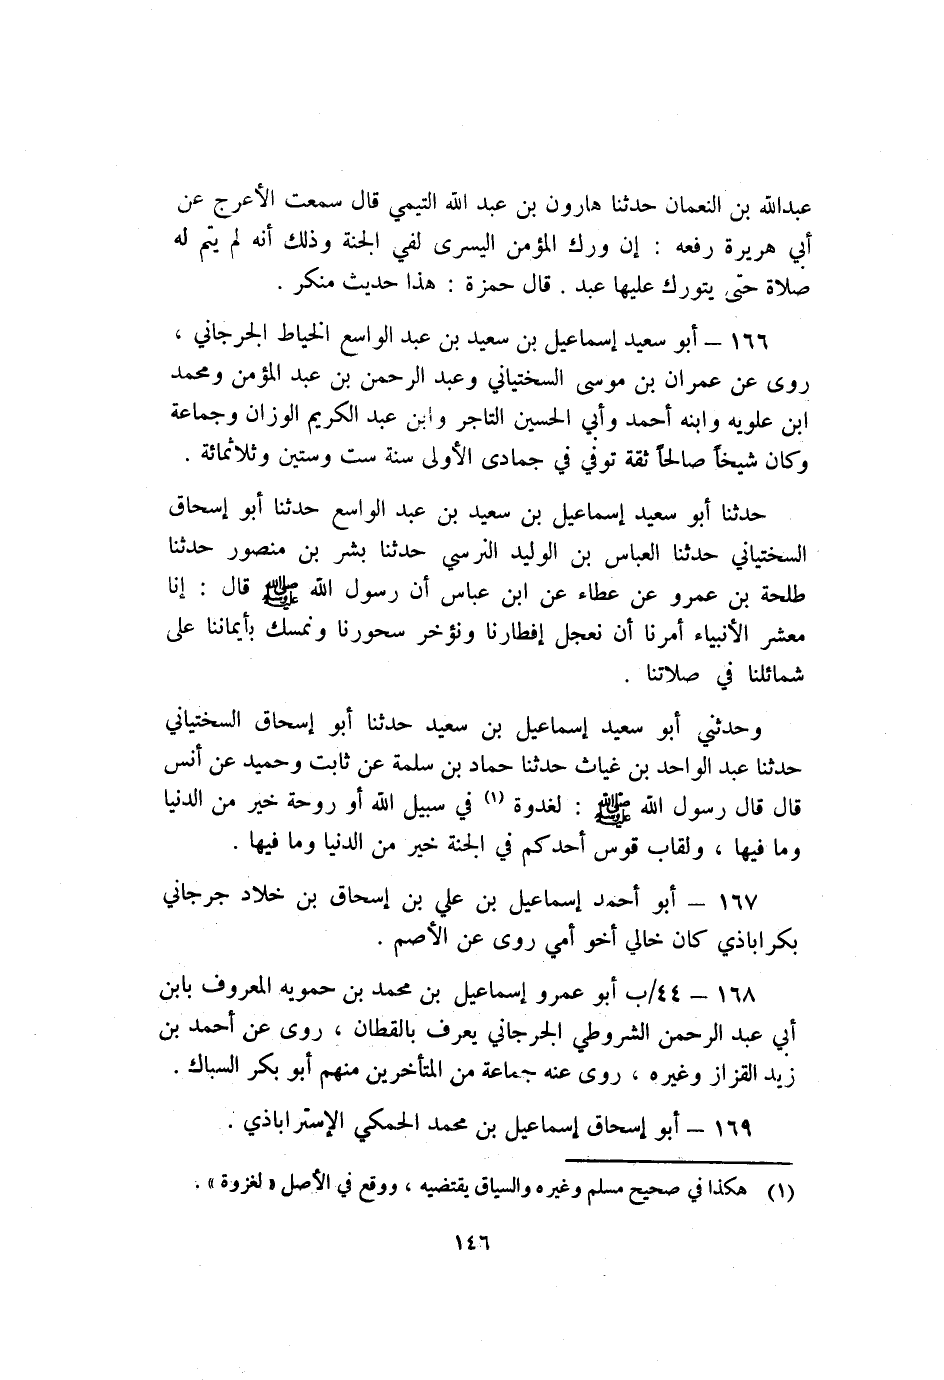 عبدالله بن النعمان حدثنا هارون بن عبد الله التيمي قال سمعت الأعرج عن
أبي هريرة رفعه : إن ورك المؤمن اليسرى لفي الجنة وذلك أنه لم يتم له
صلاة حتى يتورك عليها عبد . قال حمزة : هذا حديث منكر .
١٦٦ – أبو سعيد إسماعيل بن سعيد بن عبد الواسع الخياط الجرجاني ،
روى عن عمران بن موسى السختياني وعبد الرحمن بن عبد المؤمن ومحمد
ابن علويه وابنه أحمد وأبي الحسين التاجر وابن عبد الكريم الوزان وجماعة
وكان شيخاً صالحاً ثقة توفي في جمادى الأولى سنة ست وستين وثلاثمائة .
حدثنا أبو سعيد إسماعيل بن سعيد بن عبد الواسع حدثنا أبو إسحاق
السختياني حدثنا العباس بن الوليد النرسي حدثنا بشر بن منصور حدثنا
طلحة بن عمرو عن عطاء عن ابن عباس أن رسول الله ﷺ قال : إنا
معشر الأنبياء أمرنا أن نعجل إفطارنا ونؤخر سحورنا ونمسك بأيماننا على
شمائلنا في صلاتنا .
وحدثني أبو سعيد إسماعيل بن سعيد حدثنا أبو إسحاق السختياني
حدثنا عبد الواحد بن غياث حدثنا حماد بن سلمة عن ثابت وحميد عن أنس
قال قال رسول الله ﷺ : لغدوة (١) في سبيل الله أو روحة خير من الدنيا
وما فيها ، ولقاب قوس أحدكم في الجنة خير من الدنيا وما فيها .
١٦٧ – أبو أحمد إسماعيل بن علي بن إسحاق بن خلاد جرجاني
بكراباذي كان خالي أخو أمي روى عن الأصم .
١٦٨ – ٤٤/ب أبو عمرو إسماعيل بن محمد بن حمويه المعروف بابن
أبي عبد الرحمن الشروطي الجرجاني يعرف بالقطان ، روى عن أحمد بن
زيد القزاز وغيره ، روى عنه جماعة من المتأخرين منهم أبو بكر السباك .
١٦٩ – أبو إسحاق إسماعيل بن محمد الحمكي الإستراباذي .
(١) هكذا في صحيح مسلم وغيره والسياق يقتضيه ، ووقع في الأصل « لغزوة » .
١٤٦